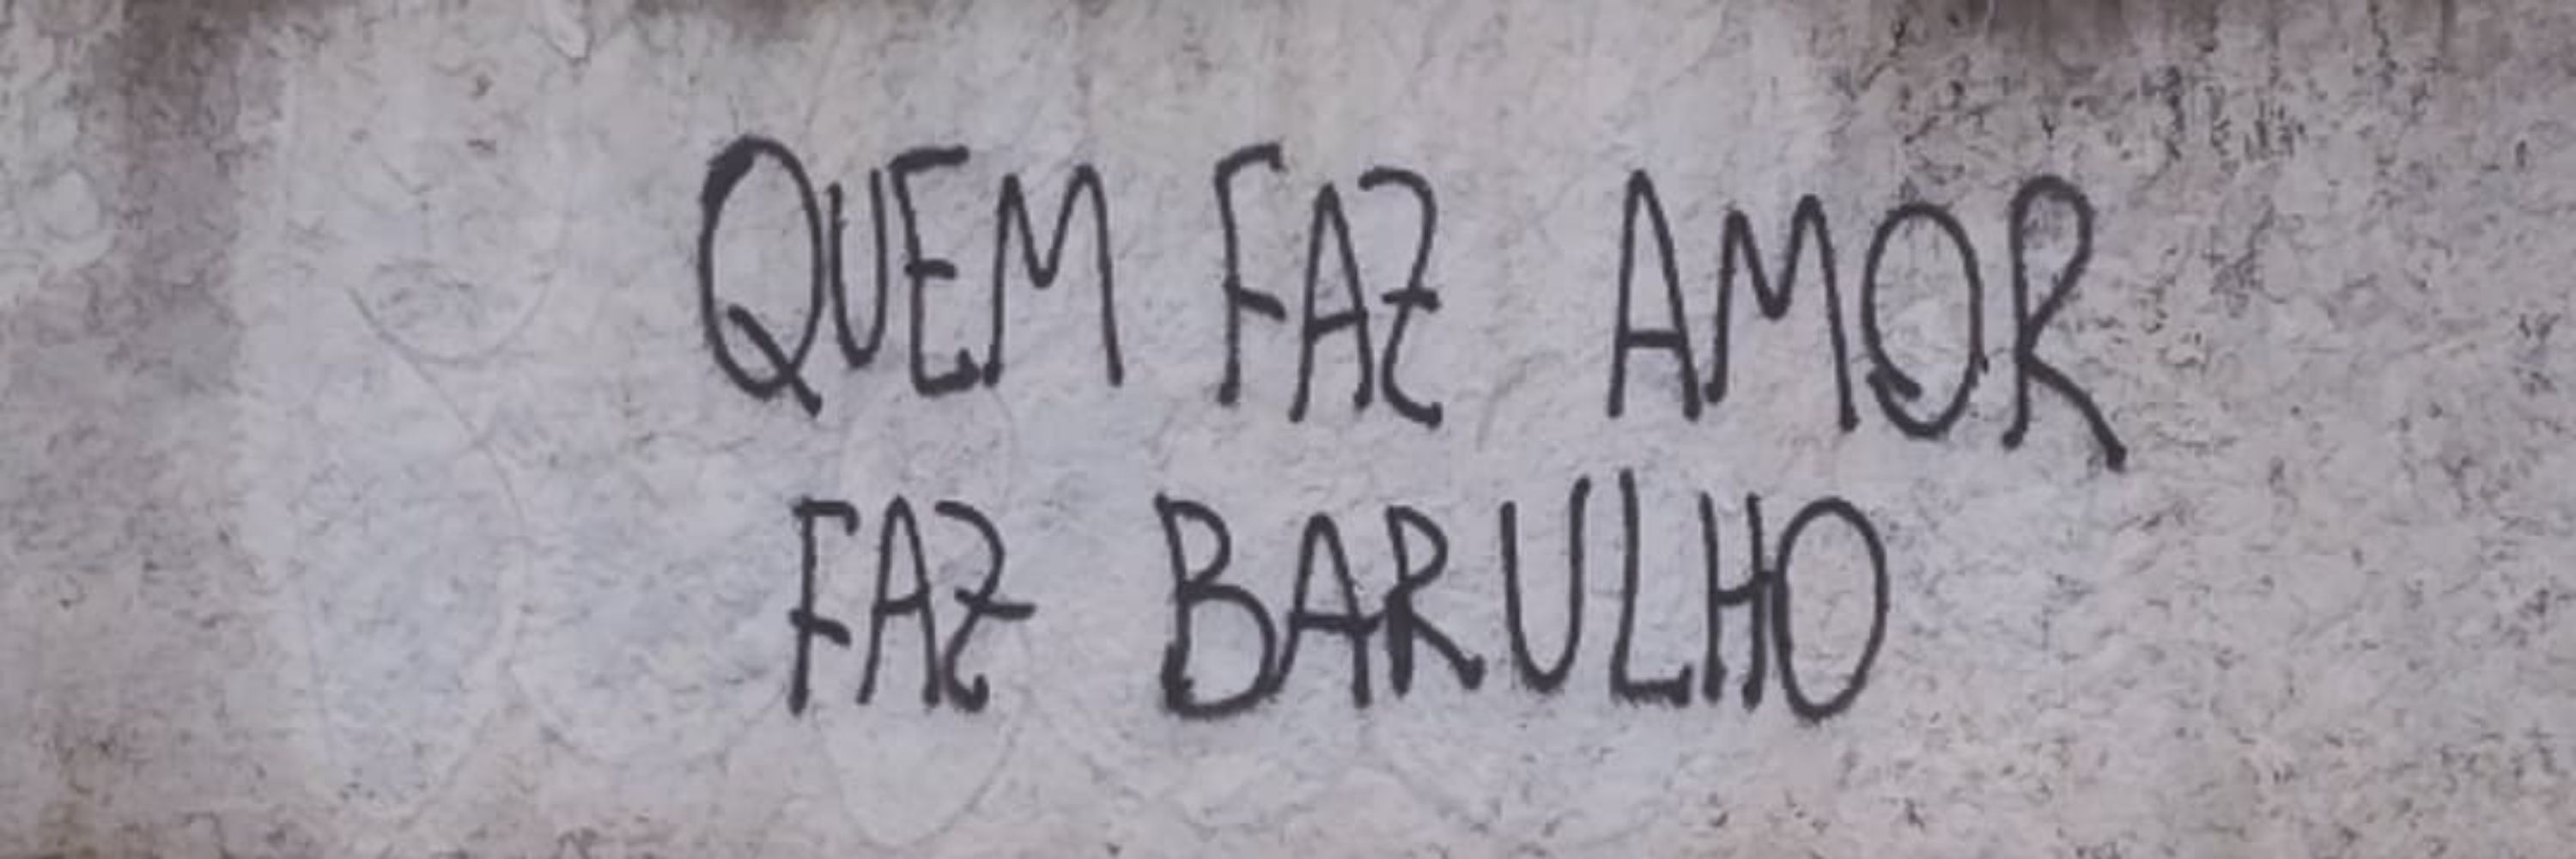 QUEM FAZ AMOR
FAZ BARULHO